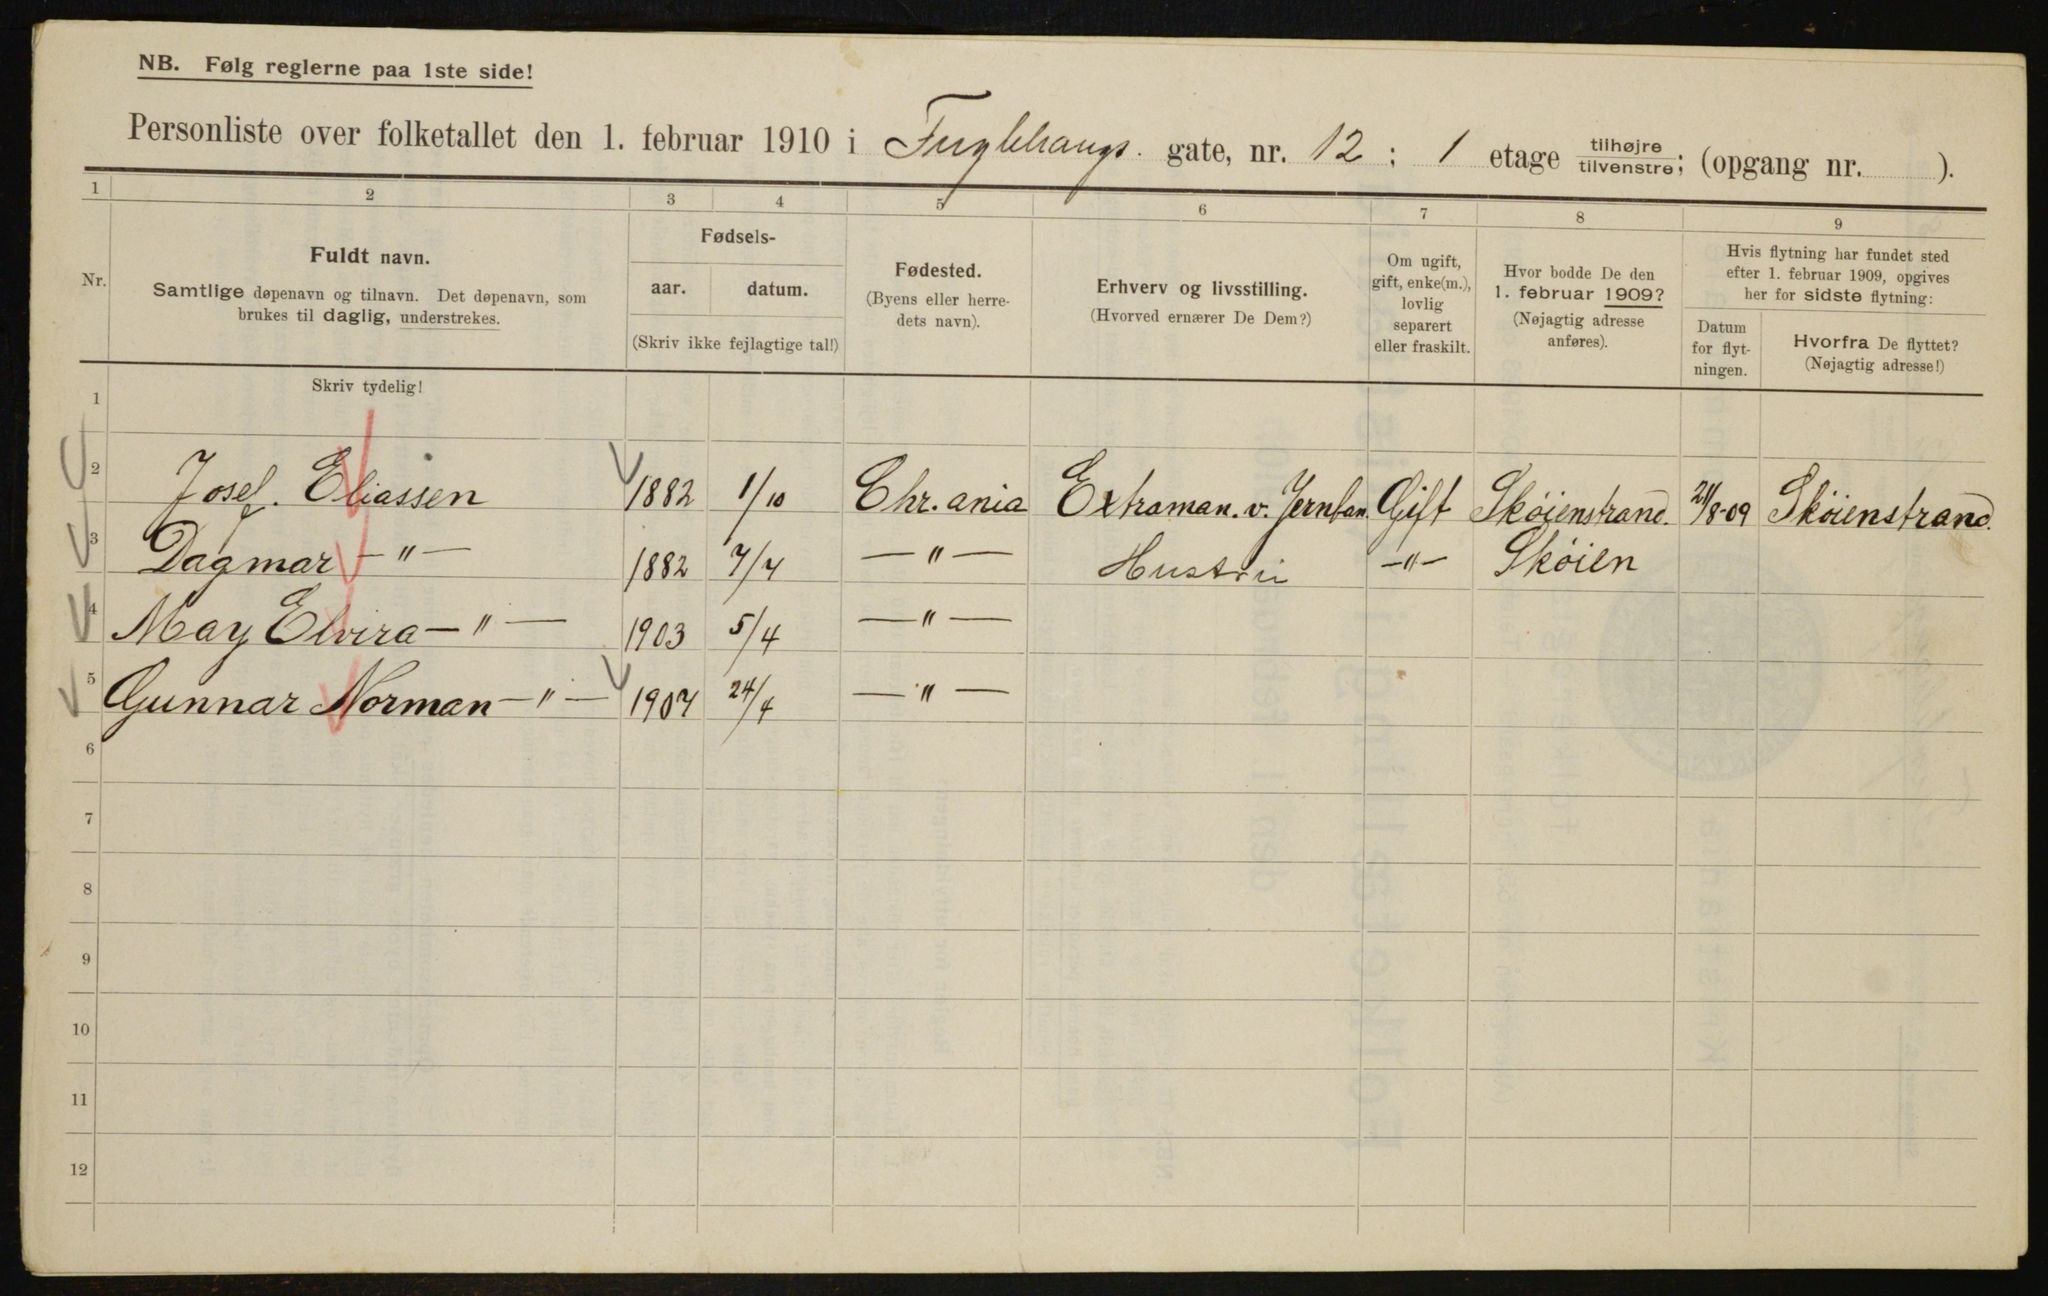 NB. Følg reglerne paa 1ste side!
Personliste over folketallet den 1. februar 1910 i Fuglehaugs. gate, nr. 12 ; 1 etage tilhøjre tilvenstre; (opgang nr. ).
1 2 3 4 5 6 7 8 9
Nr.
Fuldt navn.
Samtlige døpenavn og tilnavn. Det døpenavn, som
brukes til daglig, understrekes.
Skriv tydelig!
Fødsels-
aar. datum.
(Skriv ikke fejlagtige tal!)
Fødested.
(Byens eller herre-
dets navn).
Erhverv og livsstilling.
(Hvorved ernærer De Dem?)
Om ugift,
gift, enke(m.),
lovlig
separert
eller fraskilt.
Hvor bodde De den
1. februar 1909?
(Nøjagtig adresse
anføres).
Hvis flytning har fundet sted
efter 1. februar 1909, opgives
her for sidste flytning:
Datum
for flyt-
ningen.
Hvorfra De flyttet?
(Nøjagtig adresse!)
1
2 Josef. Eliassen 1882 1/10 Chr.ania Extraman. v. Jernban Gift Skøienstrand. 21/8-09 Skøienstrand.
3 Dagmar —"— 1882 7/7 —"— Hustru —"— Skøien
4 May Elvira —"— 1903 5/4 —"—
5 Gunnar Norman —"— 1907 24/4 —"—
6
7
8
9
10
11
12